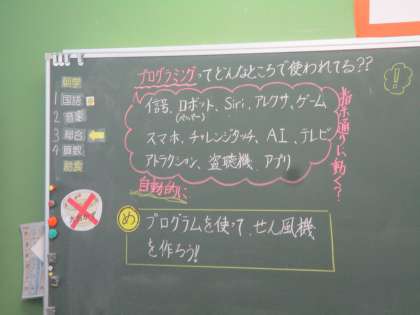 プログラミングってどんなところで使われてる??
信号、ロボット、Siri、アレクサ、ゲーム
(ペッパー)
スマホ、チャレンジタッチ、AI、テレビ
アトラクション、盗聴機、アプリ
指示通りに動く?
自動的に
め プログラムを使って、せん風機
を作ろう!!
朝学
1 国語
2 音楽
3 総合
4 算数
給食
!